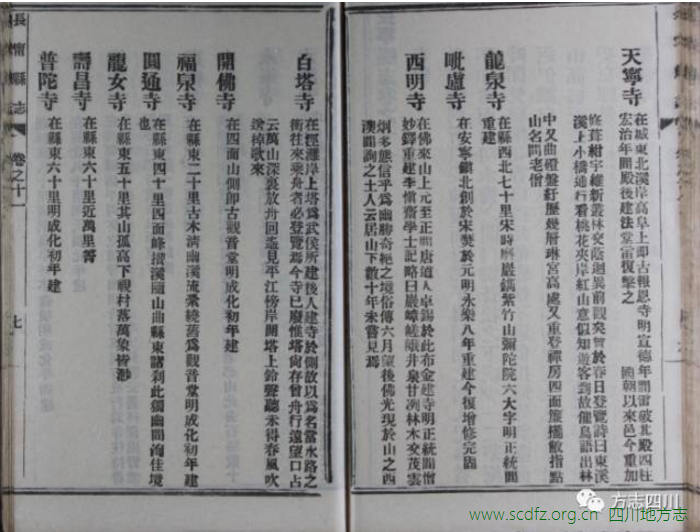 天寧寺
在城東北溪岸高阜上即古報恩寺明宣德年間雷破其殿四柱
宏治年間殿後建法堂雷復擊之 國朝以來邑令重加
修葺紺宇維新叢林交蔭迴異前觀矣曾於春日登覽詩曰東溪
溪上小橋通行看桃花夾岸紅山意似知遊客到故催鳥語出林
中又曲磴盤紆歷幾層琳宮高處又重登禪房四面簾櫳敞指點
山名問老僧
龍泉寺
在縣西北七十里宋時摩巖鐫紫竹山彌陀院六大字明正統間
重建
毗盧寺
在安寧鎮北創於宋燹於元明永樂八年重建今復增修完固
西明寺
在佛來山上元至正間唐道人卓錫於此布金建寺明正統間僧
妙鐸重建李惜齋學士記略曰巖嶂嵯峨井泉甘冽林木交茂雲
烟多態信乎為幽勝奇絕之境俗傳六月望後佛光現於山之西
澳間詢之土人云居山下數十年未嘗見焉
白塔寺
在涇灘岸上塔為武侯所建後人建寺於側故以為名當水路之
衝往來乘舟者必登覽焉今寺已廢惟塔尚存曾舟行遠望口占
云萬山深裏放舟回遙見平江傍岸開塔上鈴聲聽未得春風吹
送棹歌來
開佛寺
在四面山側即古觀音堂明成化初年建
福泉寺
在縣東二十里古木清幽溪流縈繞舊為觀音堂明成化初年建
圓通寺
在縣東四十里四面峰攢溪迴山曲縣東諸刹此獨幽閴洵佳境
也
龍女寺
在縣東五十里其山孤高下視村落萬象皆渺
壽昌寺
在縣東六十里近萬里箐
普陀寺
在縣東六十里明成化初年建
長寧縣志
卷之十一
七
方志四川
www.scdfz.org.cn 四川地方志